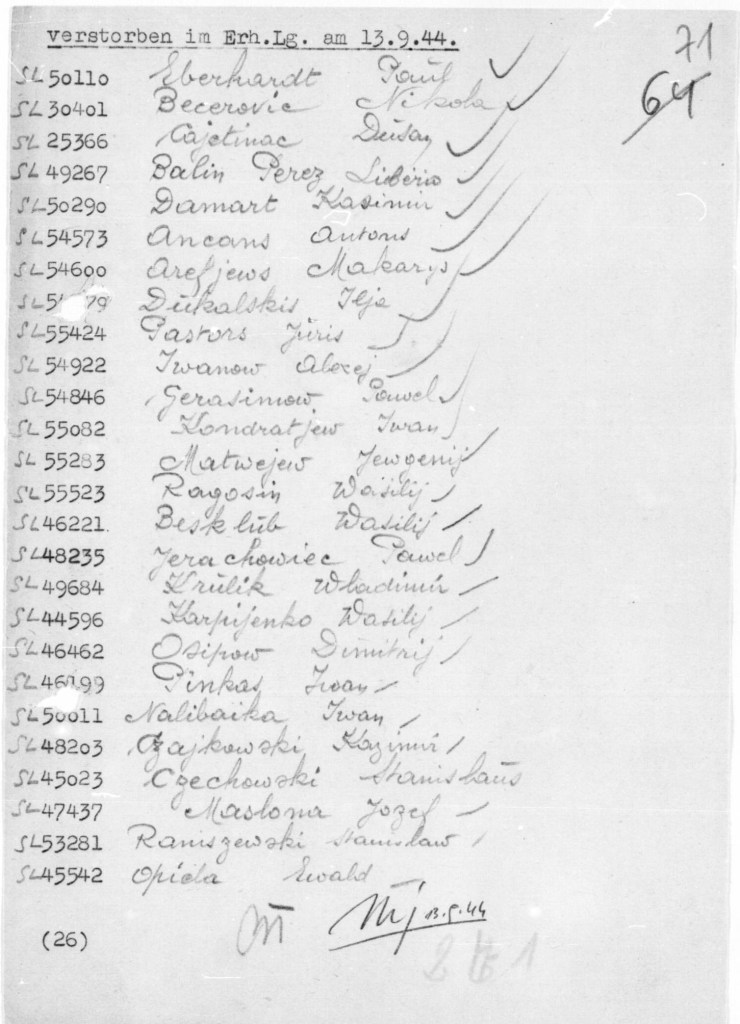 verstorben im Erh.Lg. am 13.9.44.
71
64
SL 50110 Eberhardt Paul
SL 30401 Becerovic Nikola
SL 25366 Cajetinac Dušan
SL 49267 Balin Perez Liberio
SL 50290 Damart Kasimir
SL 54573 Ancans Antons
SL 54600 Arefjews Makarys
Dukalskis Ilja
SL 55424 Pastors Juris
SL 54922 Iwanow Alexej
SL 54846 Gerasimow Pawel
SL 55082 Kondratjew Iwan
SL 55283 Matwejew Jewgenij
SL 55523 Ragosin Wasilij
SL 46221 Besklub Wasilij
SL 48235 Jerachowiec Pawel
SL 49684 Krulik Wladimir
SL 44596 Karpijenko Wasilij
SL 46462 Osipow Dimitrij
SL 46199 Pinkas Iwan
SL 50011 Nalibaika Iwan
SL 48203 Czajkowski Kazimir
SL 45023 Czechowski Stanislaus
SL 47437 Maslona Jozef
SL 53281 Raniszewski Stanislaw
SL 45542 Opiela Ewald
13.9.44
(26)